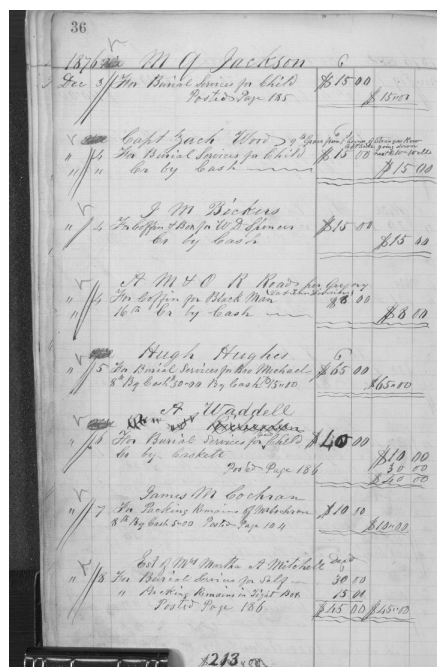 36
1876 M G Jackson 6
Dec 3 For Burial Services for Child $15 00
Posted Page 185 $15.00
Capt Zach Word
" 4 For Burial Services for Child $15 00
" " Cr by Cash $15 00
J M Bickers
" 4 For Coffin & Box for W D Spencer $15 00
Cr by Cash $15 00
A M & O R Road per Gregory
" 4 For Coffin for Black Man $8 00
" 16th Cr by Cash $8 00
Hugh Hughes 6
" 5 For Burial Services for Michael $65 00
8th By Cash 50.00 By Cash 15.00 $65.00
A Waddell
" 6 For Burial Services for Child $40 00
Cr by Caskets $10 00
Posted Page 186 30 00
$40 00
James M Cochran
" 7 For Packing Remains of Cochran $10 00
8th By Cash 5.00 Posted Page 104 $10.00
Est of Mrs Martha A Mitchell Decd
" 8 For Burial Services for Self 30 00
" Packing Remains in Tight Box 15 00
Posted Page 186 $45 00 $45.00
$213.00